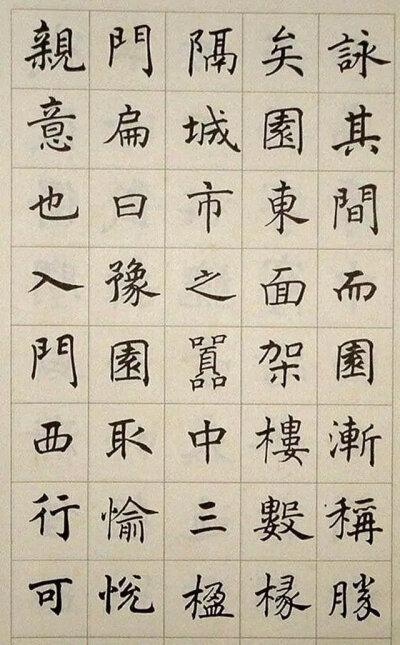 詠其間而園漸稱勝
矣園東面架樓數椽
隔城市之囂中三楹
門扁曰豫園取愉悅
親意也入門西行可